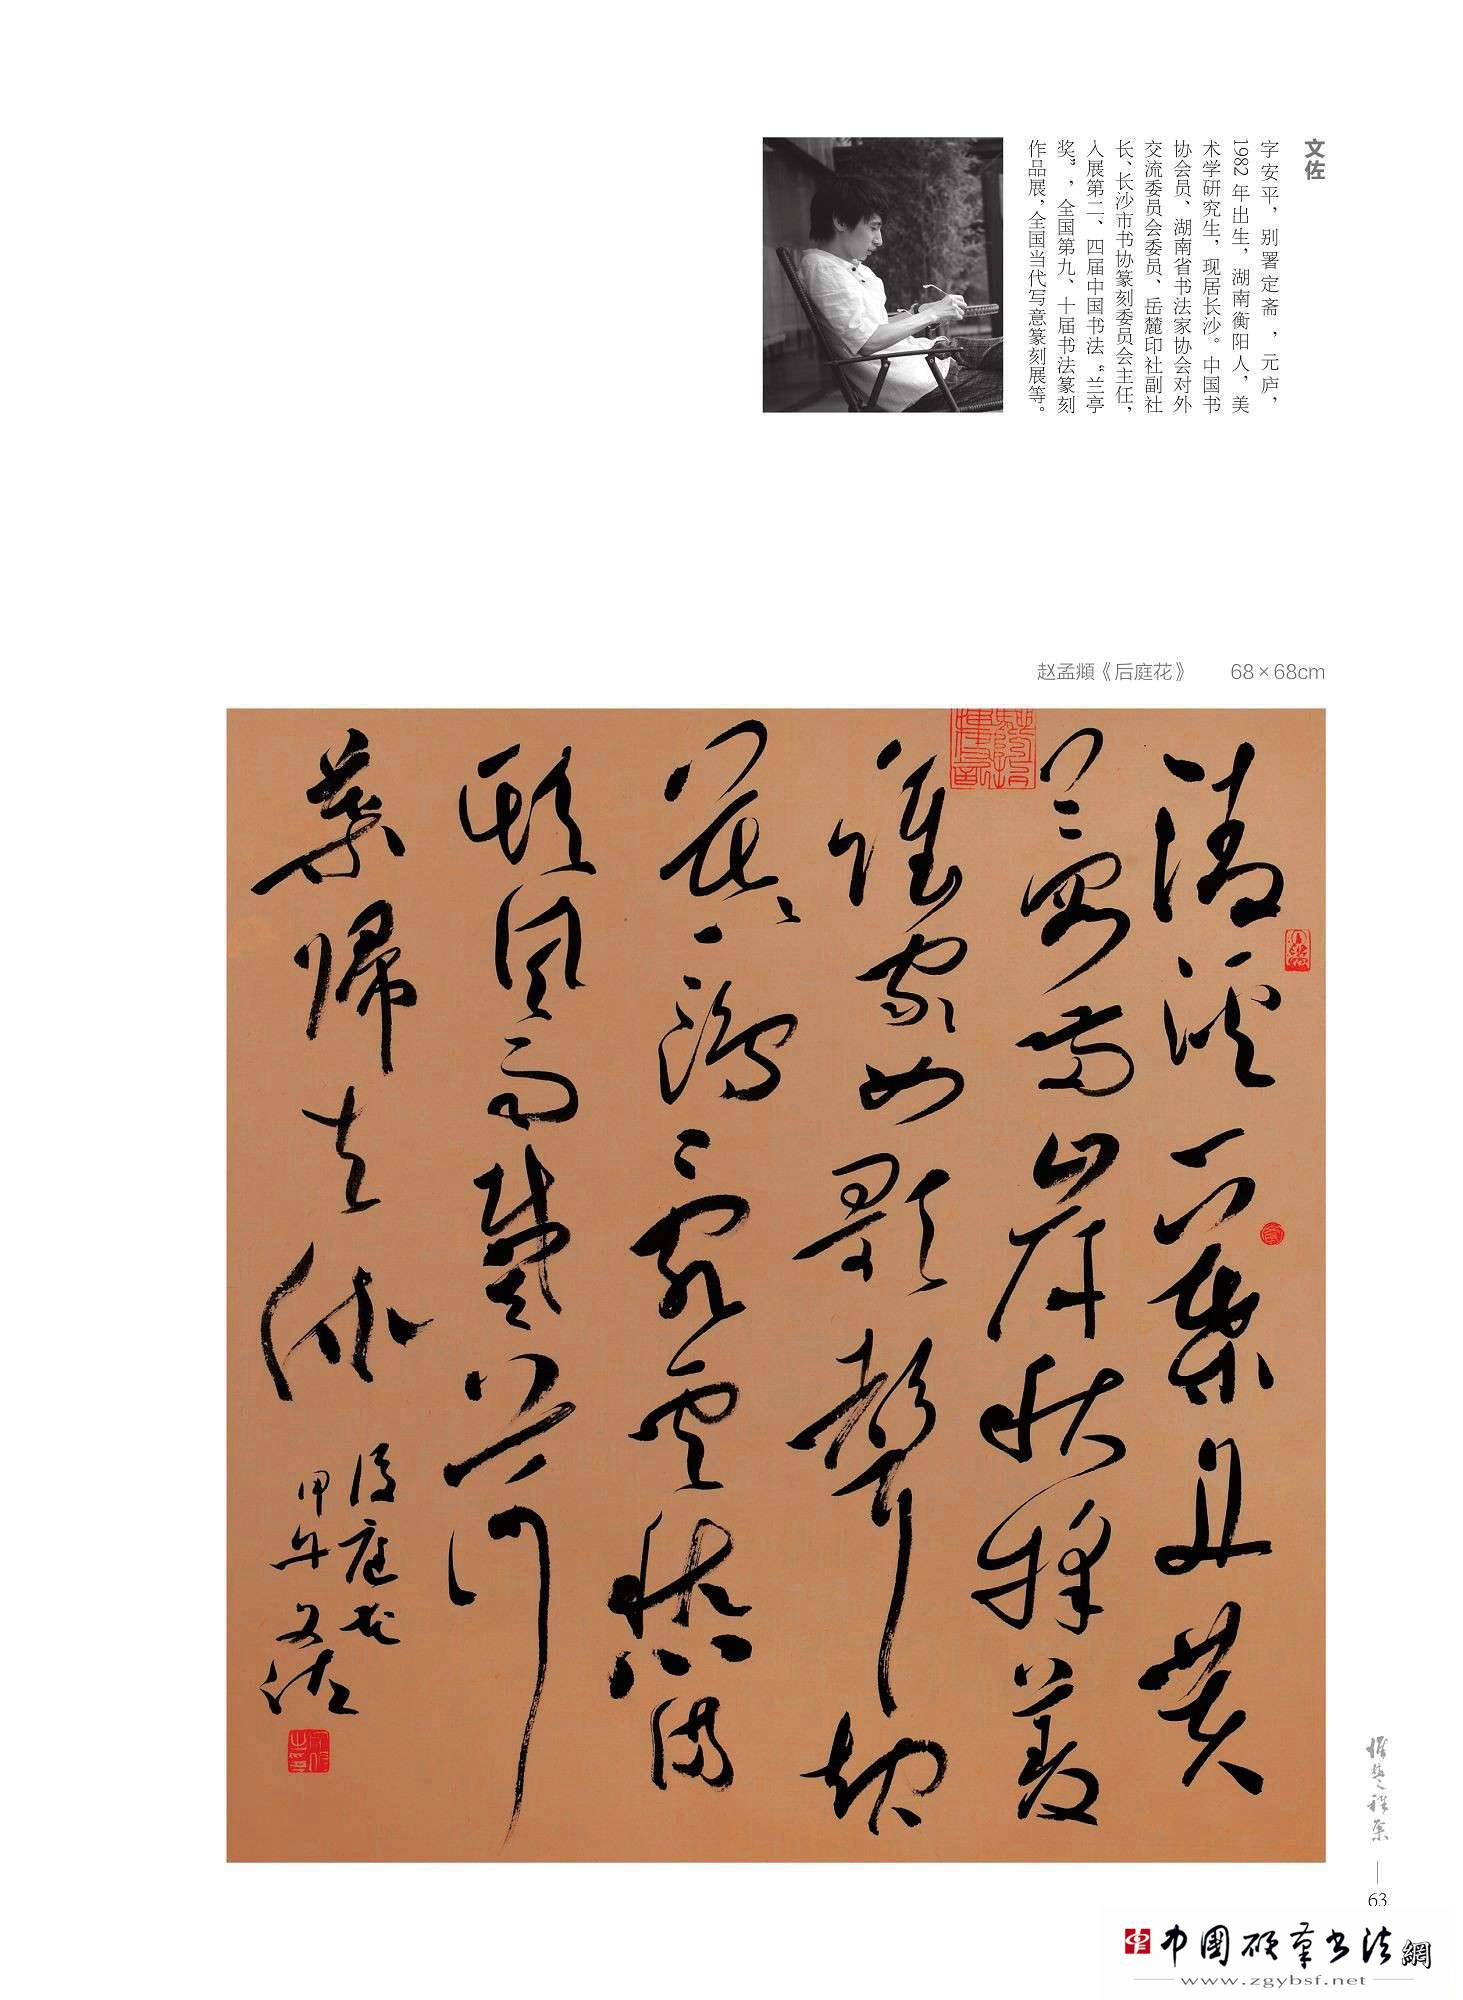 文佐
字安平，别署定斋，元庐，
1982年出生，湖南衡阳人，美
术学研究生，现居长沙。中国书
协会员、湖南省书法家协会对外
交流委员会委员、岳麓印社副社
长、长沙市书协篆刻委员会主任，
入展第二、四届中国书法“兰亭
奖”，全国第九、十届书法篆刻
作品展，全国当代写意篆刻展等。
赵孟頫《后庭花》 68×68cm
清溪一葉舟芙
蓉兩岸秋採菱
誰家女歌聲起
暮鷗亂雲愁滿
頭風雨戴荷
葉歸去休
後庭花
甲午文佐
63
中国硬笔书法網
www.zgybsf.net